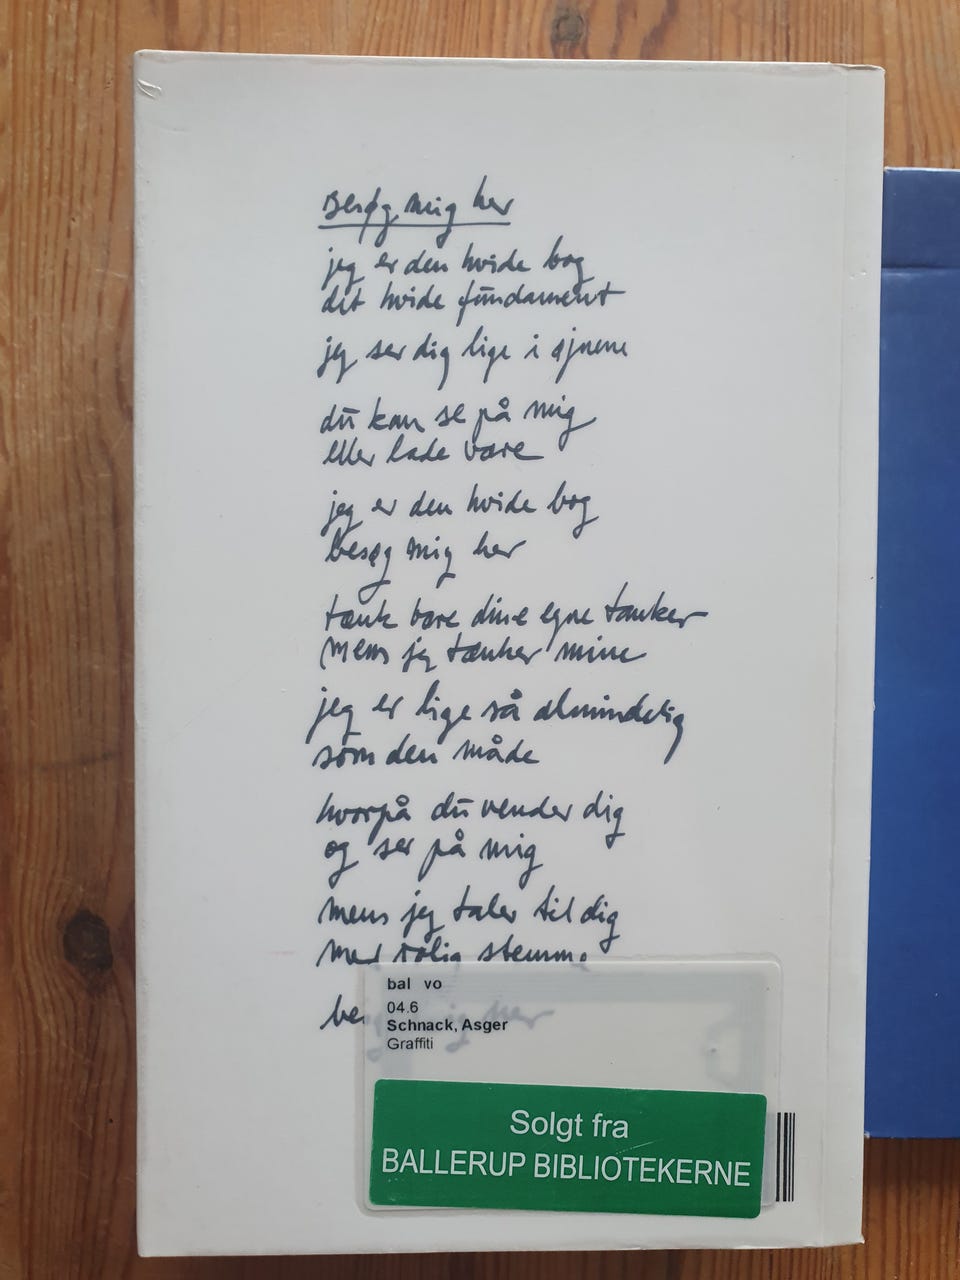 Besøg mig her
jeg er den hvide bog
det hvide fundament
jeg ser dig lige i øjnene
du kan se på mig
eller lade være
jeg er den hvide bog
besøg mig her
tænk bare dine egne tanker
mens jeg tænker mine
jeg er lige så almindelig
som den måde
hvorpå du vender dig
og ser på mig
mens jeg taler til dig
med rolig stemme
besøg mig her
bal vo
04.6
Schnack, Asger
Graffiti
Solgt fra
BALLERUP BIBLIOTEKERNE